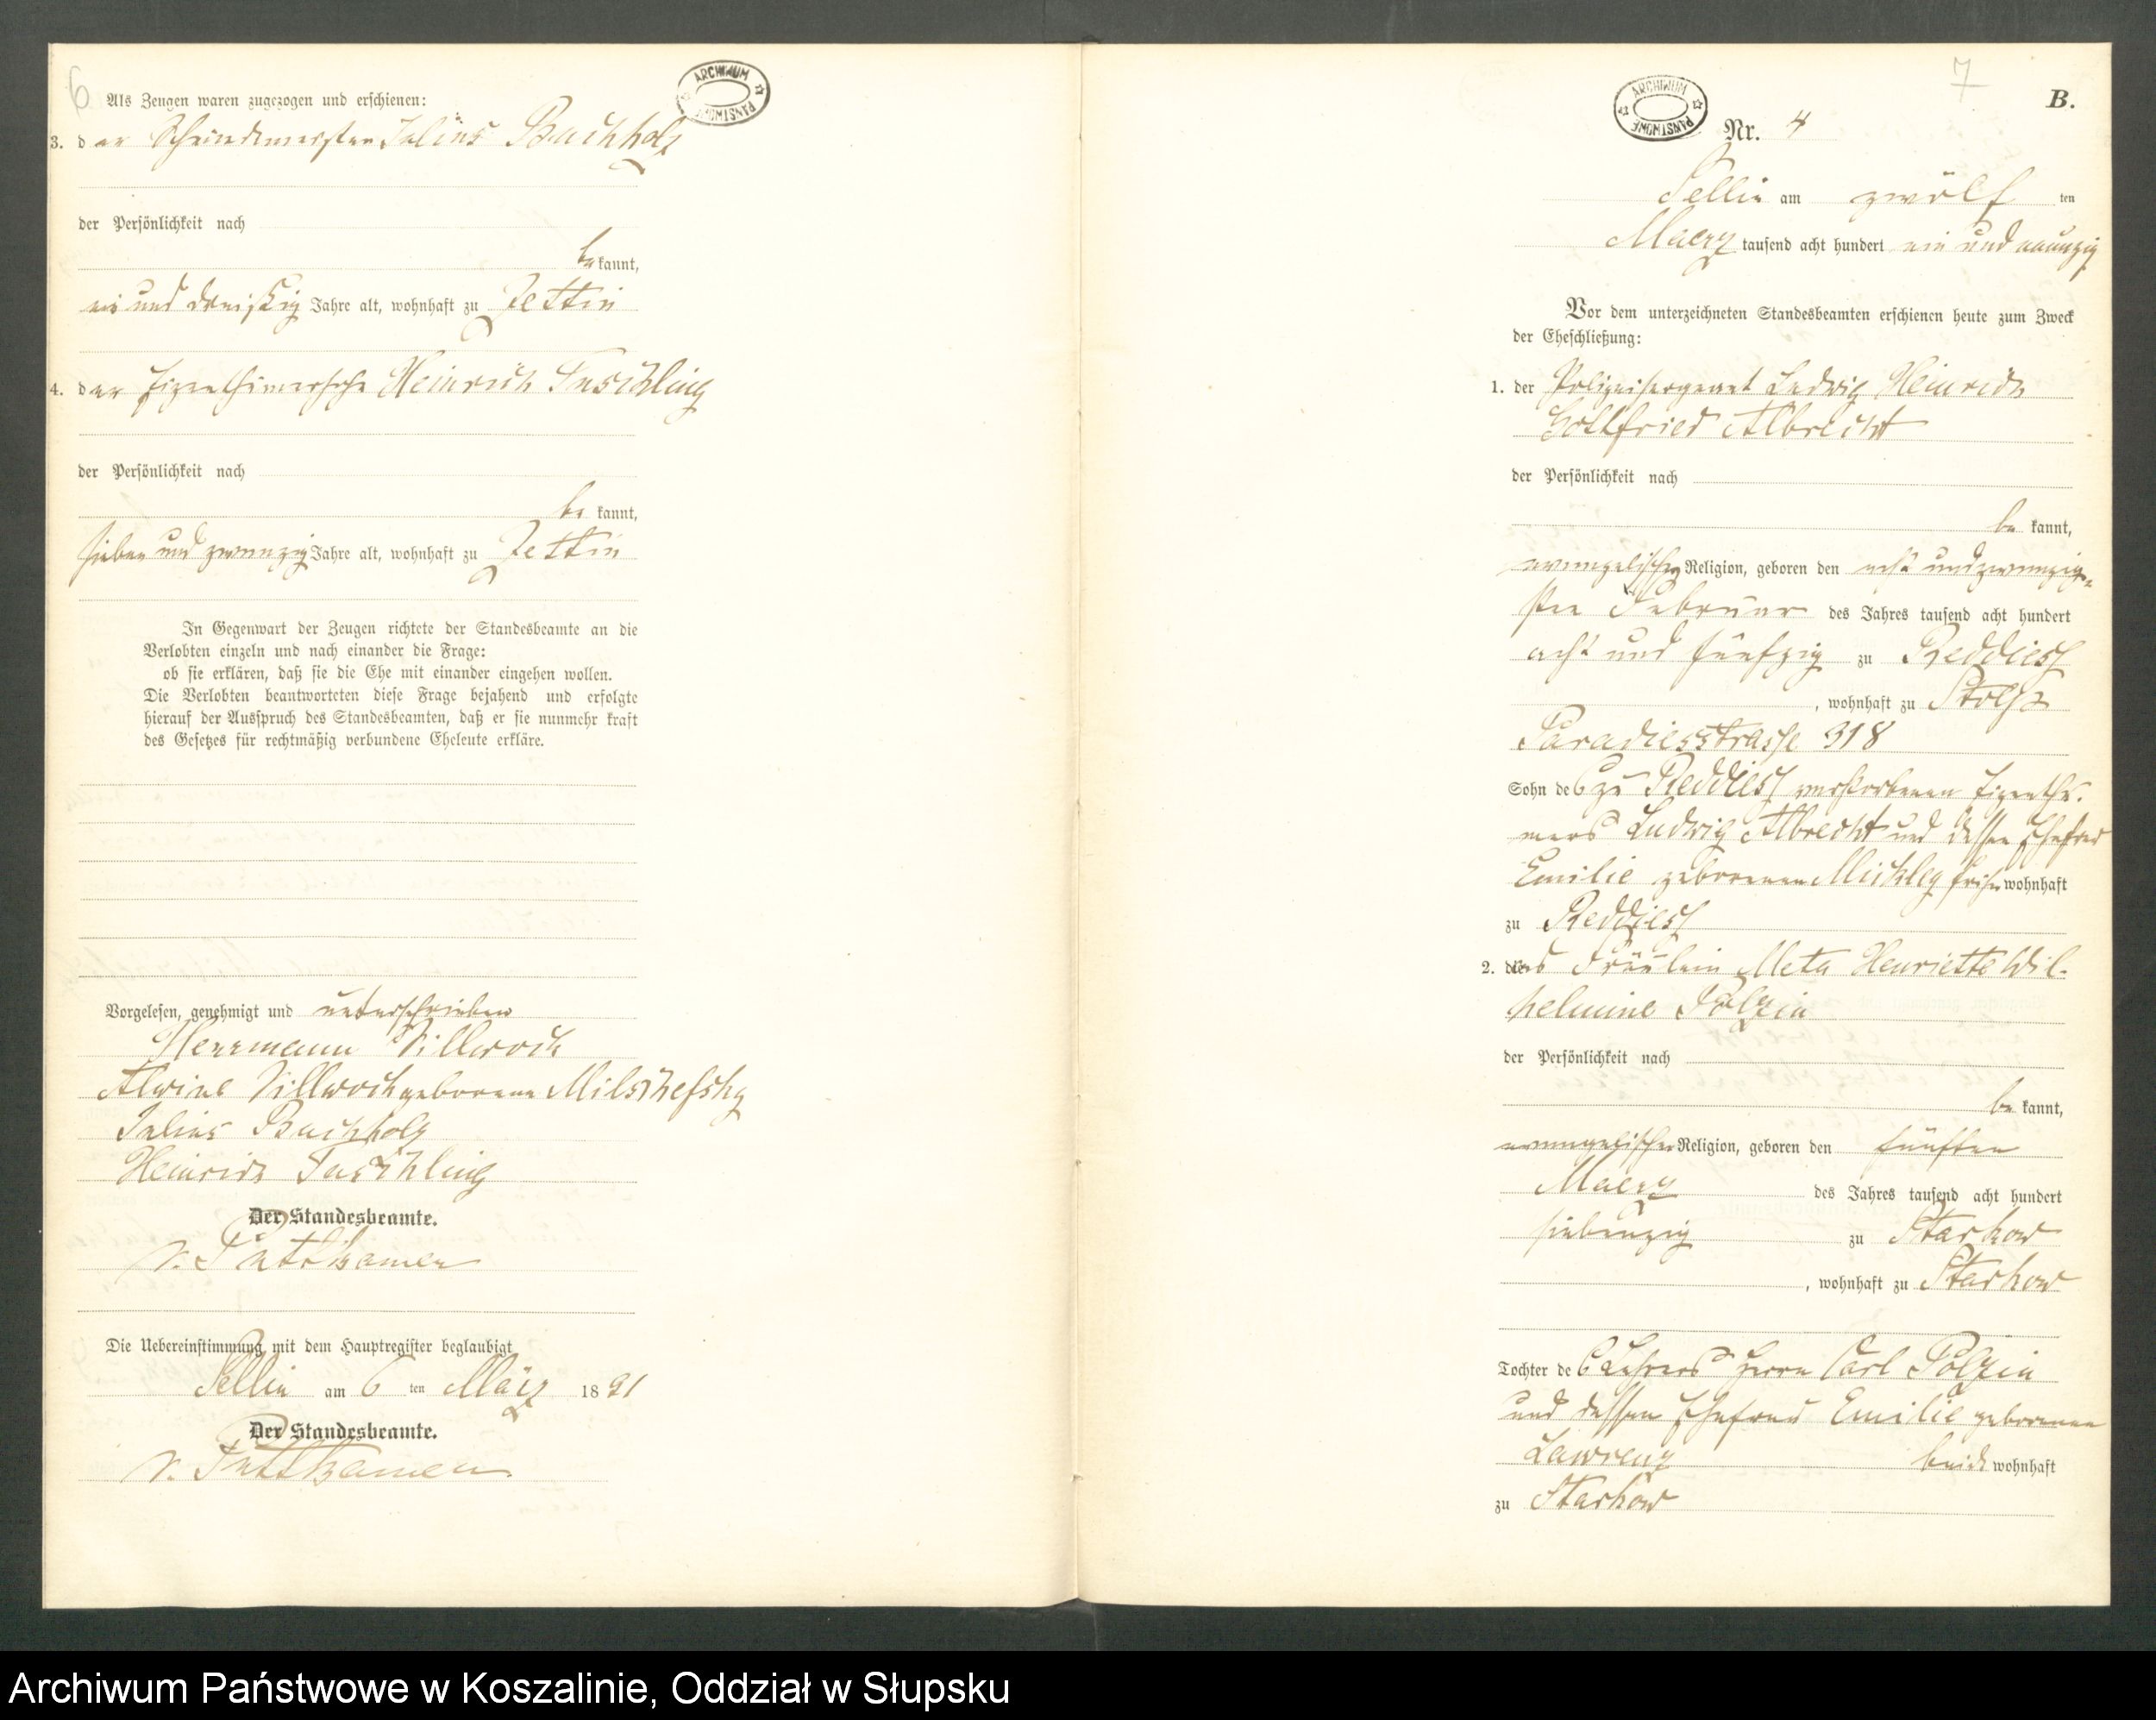 6
Als Zeugen waren zugezogen und erschienen:
ARCHIWUM PAŃSTWOWE
3. der Schmiedemeister Julius Buchholz
der Persönlichkeit nach
bekannt,
ein und dreißig Jahre alt, wohnhaft zu Zettin
4. der Eigenthümersohn Heinrich Tuschling
der Persönlichkeit nach
be kannt,
sieben und zwanzig Jahre alt, wohnhaft zu Zettin
In Gegenwart der Zeugen richtete der Standesbeamte an die
Verlobten einzeln und nach einander die Frage:
ob sie erklären, daß sie die Ehe mit einander eingehen wollen.
Die Verlobten beantworteten diese Frage bejahend und erfolgte
hierauf der Ausspruch des Standesbeamten, daß er sie nunmehr kraft
des Gesetzes für rechtmäßig verbundene Eheleute erkläre.
Vorgelesen, genehmigt und unterschrieben
Herrmann Villwock
Alwine Villwock geborene
Julius Buchholz
Heinrich Tuschling
Der Standesbeamte.
v. Puttkamer
Die Uebereinstimmung mit dem Hauptregister beglaubigt
Sellin am 6 ten März 1891
Der Standesbeamte.
v. Puttkamer
7
B.
ARCHIWUM PAŃSTWOWE
Nr. 4
Sellin am zwölf ten
Maerz tausend acht hundert ein und neunzig
Vor dem unterzeichneten Standesbeamten erschienen heute zum Zweck
der Eheschließung:
1. der Polizeisergeant Ludwig Heinrich
Gottfried Albrecht
der Persönlichkeit nach
be kannt,
evangelischer Religion, geboren den acht und zwanzig-
sten Februar des Jahres tausend acht hundert
acht und fünfzig zu Reddies
, wohnhaft zu Stolp
Paradiesstrasse 318
Sohn des zu Reddies verstorbenen Eigenthü-
mers Ludwig Albrecht und dessen Ehefrau
Emilie geborenen wohnhaft
zu Reddies
2. das Fräulein Meta Henriette Wil-
helmine Polzin
der Persönlichkeit nach
be kannt,
evangelischer Religion, geboren den fünften
Maerz des Jahres tausend acht hundert
siebenzig zu Starkow
, wohnhaft zu Starkow
Tochter des Lehrers Herrn Carl Polzin
und dessen Ehefrau Emilie geborenen
Lawrenz beide wohnhaft
zu Starkow
Archiwum Państwowe w Koszalinie, Oddział w Słupsku